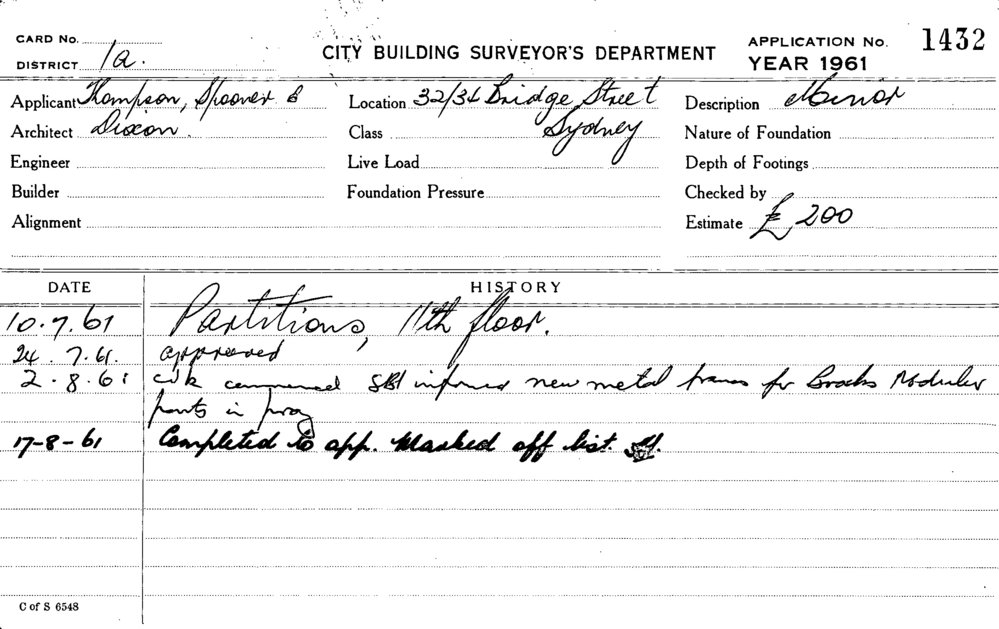 CARD No.
DISTRICT 1a.
CITY BUILDING SURVEYOR'S DEPARTMENT
APPLICATION No. 1432
YEAR 1961
Applicant Thompson, Spooner &
Architect Dixon.
Engineer
Builder
Alignment
Location 32/34 Bridge Street
Class Sydney
Live Load
Foundation Pressure
Description Minor
Nature of Foundation
Depth of Footings
Checked by
Estimate £200
DATE HISTORY
10.7.61 Partitions, 11th floor.
24.7.61. approved
2.8.61 commenced informed new metal frames for
parts in prog
17-8-61 Completed to app. Marked off list.
C of S 6548